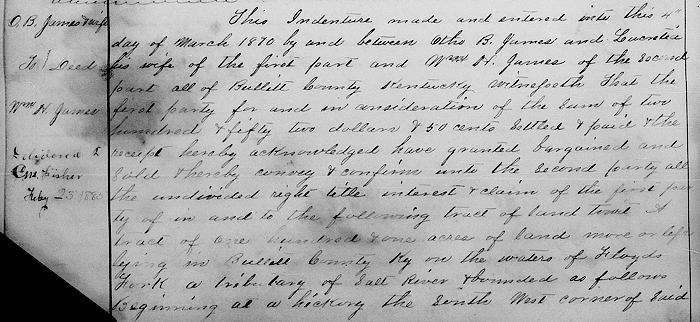 O. B. James & wife
To } Deed
Wm H. James
Delivered to
Fisher
Feby 23 1880
This Indenture made and entered into this 4"
day of March 1870 by and between Otho B. James and Lucretia
his wife of the first part and Wm H. James of the second
part all of Bullitt County Kentucky Witnesseth That the
first party for and in consideration of the sum of two
hundred & fifty two dollars & 50 cents settled & paid & the
receipt hereby acknowledged have granted bargained and
sold & hereby convey & confirm unto the second party all
the undivided right title interest & claim of the first par
ty of in and to the following tract of land towit A
tract of one hundred & one acres of land more or less
lying in Bullitt County Ky on the waters of Floyds
Fork a tributary of Salt River & bounded as follows
Beginning at a hickory the South West corner of said